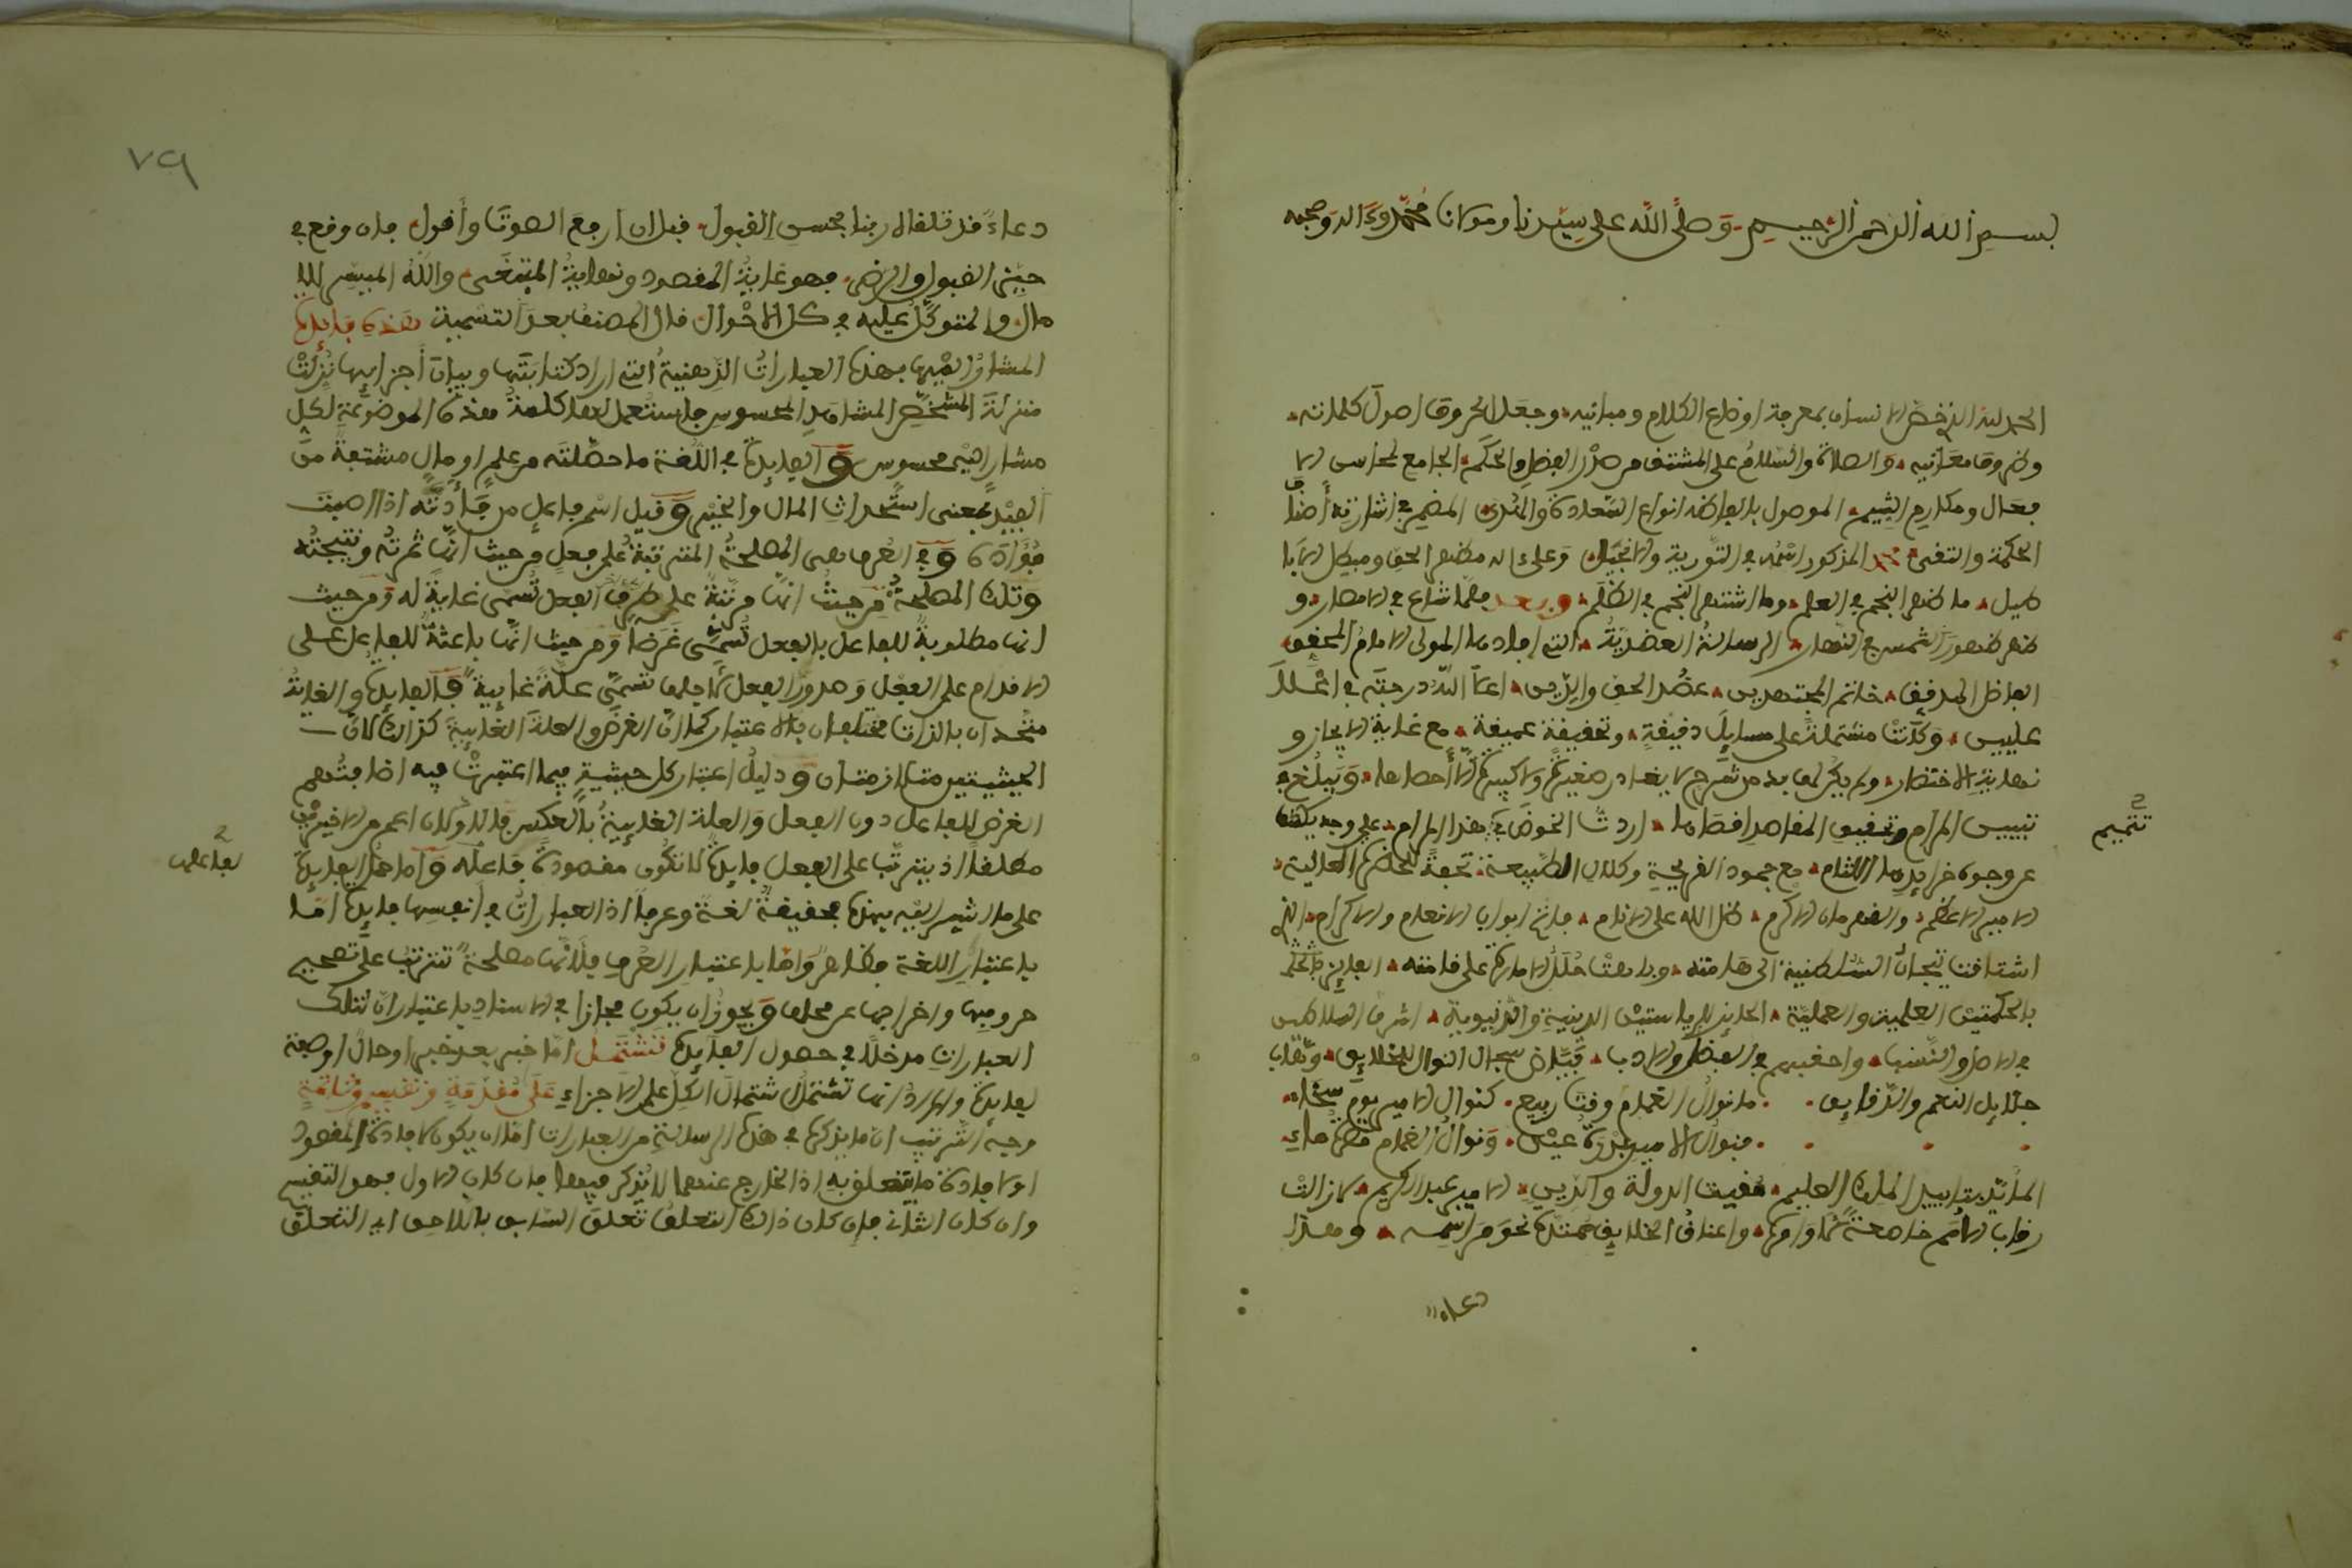 بسم الله الرحمن الرحيم وصلى الله على سيدنا ومولانا محمد وءاله وصحبه
الحمد لله الذى خص الانسان بمعرفة اوضاع الكلام ومبانيه وجعل الحروف اصول كلماته
وظروف معانيه والصلاة والسلام على المشتق من صدر الفضل والحكم الجامع لمحاسن الا
فعال ومكارم الشيم الموصول بالفاظه انواع السعادة والهدى المضمر في اشارته أضاف
الحكمة والتقى محمد المذكور اسمه في التورية والانجيل وعلى اله مظهر الحق ومبطل الابا
طيل ما ظهر النجم في العلم وما اشتهر النجم في الظلم وبعد فلما شاع في الامصار و
ظهر ظهور الشمس في النهار الرسالة العضدية التي افادها المولى الامام المحقق
الفاضل المدقق خاتم المجتهدين عضد الحق والدين اعلا الله درجته في اعلا
عليين وكانت مشتملة على مسايل دقيقة وتحقيقة عميقة مع غاية الايجاز و
نهاية الاختصار ولم يكن لها بد من شرح لا يغادر صغيرة ولا كبيرة الا أحصاها ويبلغ في
تبيين المرام وتحقيق المقاصد اقصاها اردت الخوض في هذا المرام على وجه يكشف
تتميم
عن وجوه خرايدها اللثام مع جمود القريحة وكلال الطبيعة تحفة للحضرة العالية
الامير الاعظم والقهرمان الاكرم ظل الله على الانام فاتح ابواب الانعام والاكرام الذى
اشتاقت تيجان السلطنية الى هامته وباهت حلل الامارة على قامته الفايز
بالحكمتين العلمية والعملية الحايز للرياستين الدينية والدنيوية اشرف السلاطين
في الاصل والنسب واحقهم في الفضل والادب فياض سجال النوال للخلايق وهاب
جلايل النعم والدقايق ما نوال الغمام وقت ربيع كنوال الامير يوم سخاء
فنوال الامير بدرة عين ونوال الغمام قطرة ماء
المايد بتاييد الملك العليم مغيث الدولة والدين الامير عبد الكريم لا زالت
رقاب الامم خاضعة لاوامره واعناق الخلايق ممتدة نحو مراسمه وهذا
دعاء
٧٩
دعاء قد تلقاه ربنا بحسن القبول قبل ان ارفع الصوتا وأقول فان وقع في
حيز القبول والرضى فهو غاية المقصود ونهاية المبتغى والله الميسر للا
مال والمتوكل عليه في كل الاحوال قال المصنف بعد التسمية هذه فايدة
المشار اليها بهذه العبارات الذهنية التي اراد كتابتها وبيان أجزايها نزلت
منزلة المشخص المشاهد المحسوس فاستعمل لها كلمة هذه الموضوعة لكل
مشار اليه محسوس و الفايدة في اللغة ما حصلته من علم او مال مشتقة من
الفيد بمعنى استحداث المال والخير و قيل اسم فاعل من فأدته اذا اصبت
فؤاده و في العرف هى المصلحة المترتبة على فعل من حيث انها ثمرته ونتيجته
و تلك المصلحة من حيث انها مرتبة على طرف الفعل تسمى غاية له ومن حيث
انها مطلوبة للفاعل بالفعل تسمى غرضا ومن حيث انها باعثة للفاعل على
الاقدام على الفعل وصدور الفعل لاجلها تسمى علة غايية فالفايدة والغاية
متحدان بالذات مختلفان بالاعتبار كما ان الغرض والعلة الغايية كذالك لان
الحيثيتين متلازمتان و دليل اعتبار كل حيثية فيما اعتبرت فيه اضافتهم
الغرض للفاعل دون الفعل والعلة الغايية بالعكس فالاولان اعم من الاخيرين
مطلقا اذ يترتب على الفعل فايدة لا تكون مقصودة فاعله و اما حمل الفايدة
لفاعله
على ما اشير اليه بهذه فحقيقة لغة وعرفا اذ العبارات في أنفسها فايدة اما
باعتبار اللغة فظاهر واما باعتبار العرف فلانها مصلحة تترتب على تصحيح
حروفها واخراجها عن محلها و يجوز ان يكون مجازا في الاسناد باعتبار ان لتلك
العبارات مدخلا في حصول الفايدة تشتمل اما خبر بعد خبر او حال او صفة
لفايدة والمراد انها تشتمل اشتمال الكل على الاجزاء على مقدمة وتقسيم وخاتمة
وجه الترتيب ان ما يذكره في هذه الرسالة من العبارات اما ان يكون لافادة المقصود
او لافادة ما يتعلق به اذ الخارج عنهما لا يذكر فيها فان كان الاول فهو التقسيم
وان كان الثاني فان كان ذالك التعلق تعلق السابق باللاحق اى التعلق